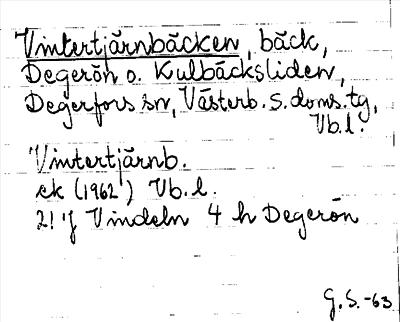 Vintertjärnbäcken, bäck,
Degerön o. Kulbäcksliden,
Degerfors sn, Västerb. s. doms. tg,
Vb. l.
Vintertjärnb.
ek (1962) Vb. l.
21 f Vindeln 4 h Degerön
G. S. -63